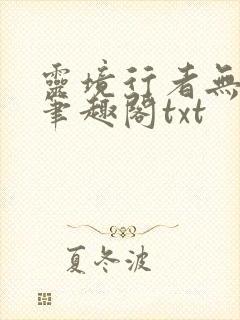 靈境行者無
筆趣閣txt
夏冬波